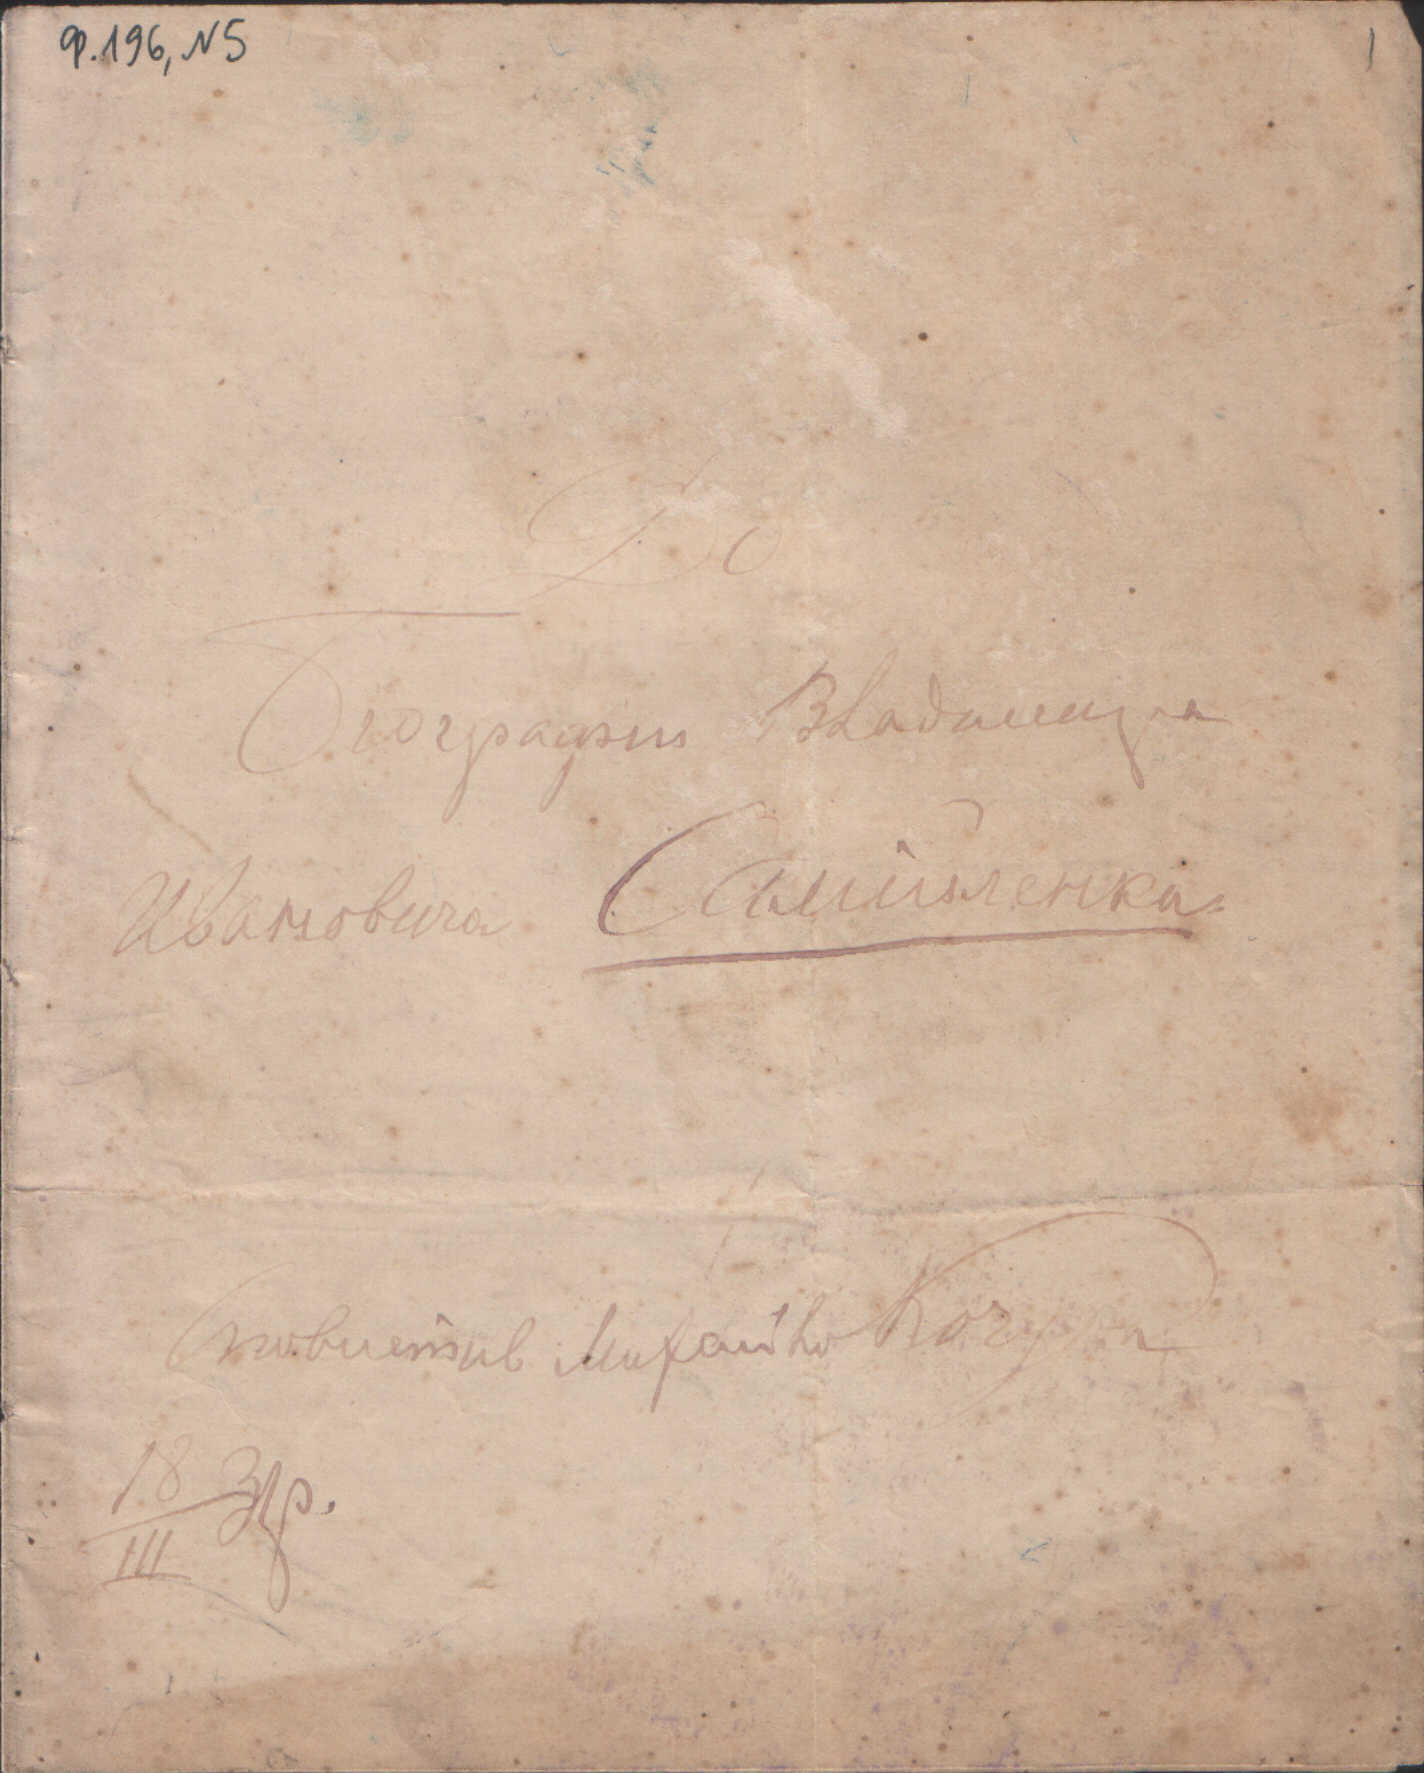 Ф.196, №5
1
До
Біографіи Владимира
Ивановича Самійленка
Михайло Кочура
18
III